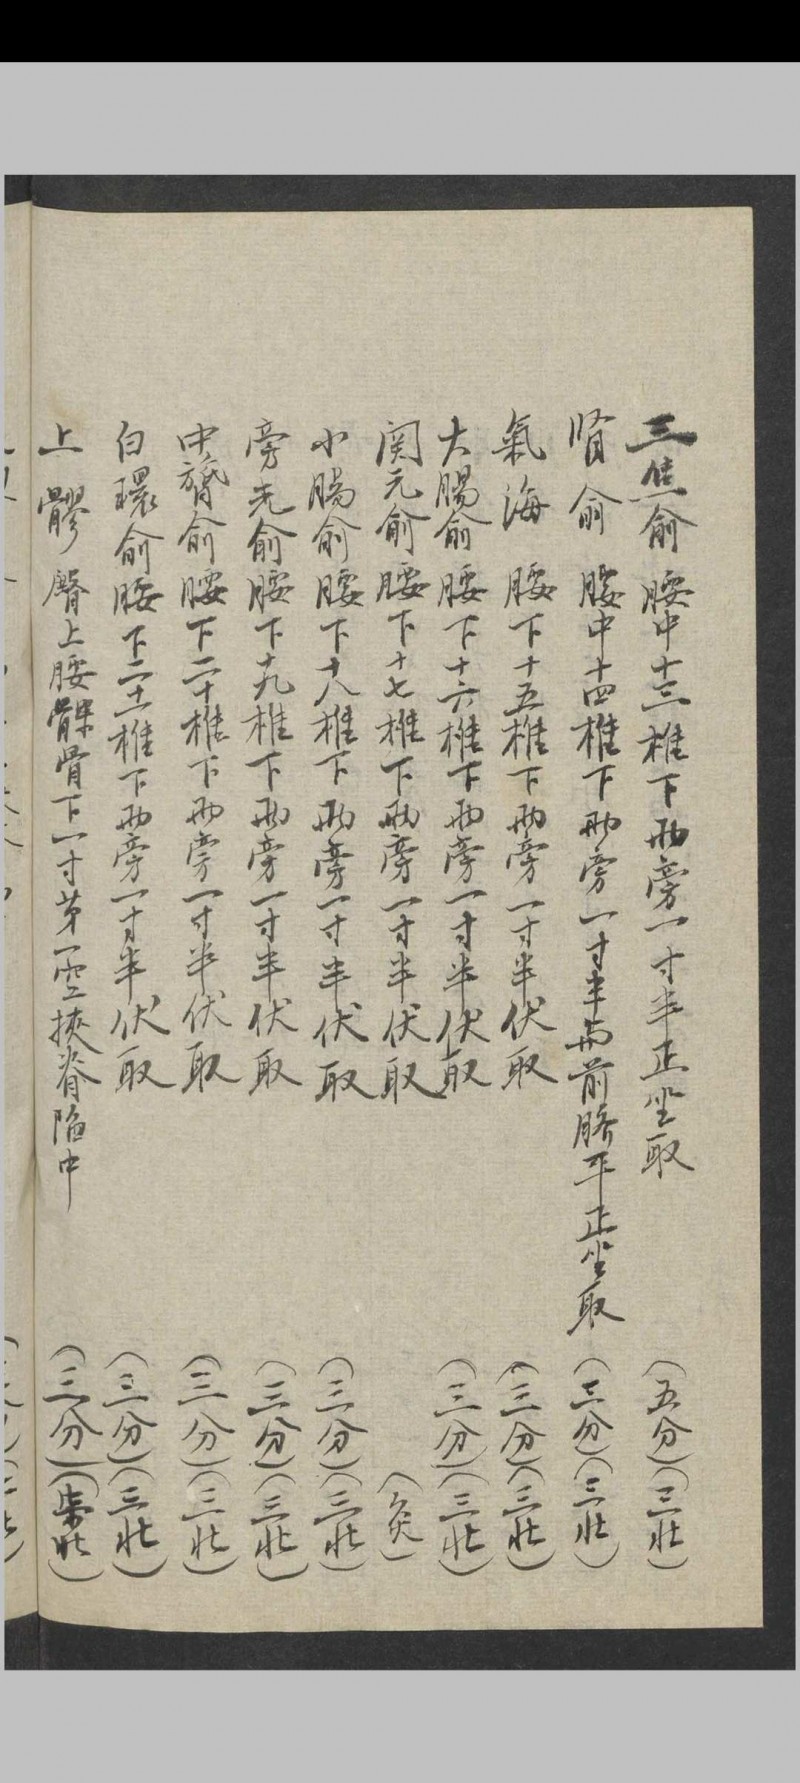 三焦俞 腰中十三椎下两旁一寸半正坐取 (五分)(三壮)
腎俞 腰中十四椎下两旁一寸半与前臍平正坐取 (三分)(三壮)
氣海 腰下十五椎下两旁一寸半伏取 (三分)(三壮)
大腸俞 腰下十六椎下两旁一寸半伏取 (三分)(三壮)
関元俞 腰下十七椎下两旁一寸半伏取 (灸)
小腸俞 腰下十八椎下两旁一寸半伏取 (三分)(三壮)
旁光俞 腰下十九椎下两旁一寸半伏取 (三分)(三壮)
中膂俞 腰下二十椎下两旁一寸半伏取 (三分)(三壮)
白環俞 腰下二十一椎下两旁一寸半伏取 (三分)(三壮)
上髎 臀上腰髁骨下一寸第一空挾脊陷中 (三分)(柒壮)